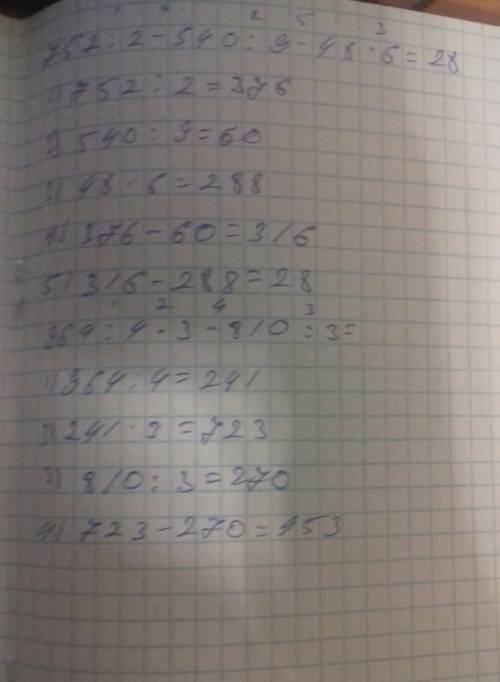 1 4 2 5 3
752:2-540:9-48·6=28
1) 752:2=376
2) 540:9=60
3) 48·6=288
4) 376-60=316
5) 316-288=28
1 2 4 3
964:4·3-810:3=
1) 964:4=241
2) 241·3=723
3) 810:3=270
4) 723-270=453